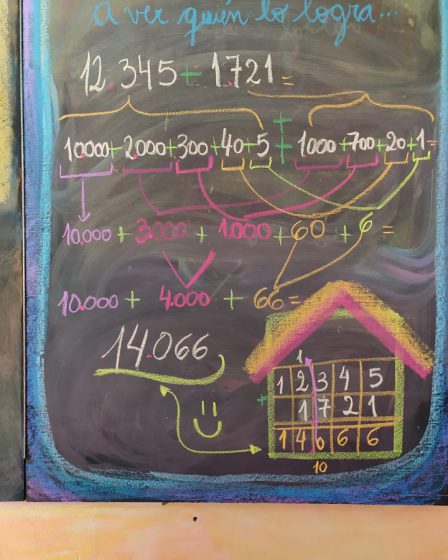 A ver quién lo logra...
12.345 + 1.721 =
10.000 + 2.000 + 300 + 40 + 5 + 1000 + 700 + 20 + 1 =
10.000 + 3.000 + 1.000 + 60 + 6 =
10.000 + 4.000 + 66 =
14.066
1
1 2 3 4 5
+ 1 7 2 1
1 4 0 6 6
10